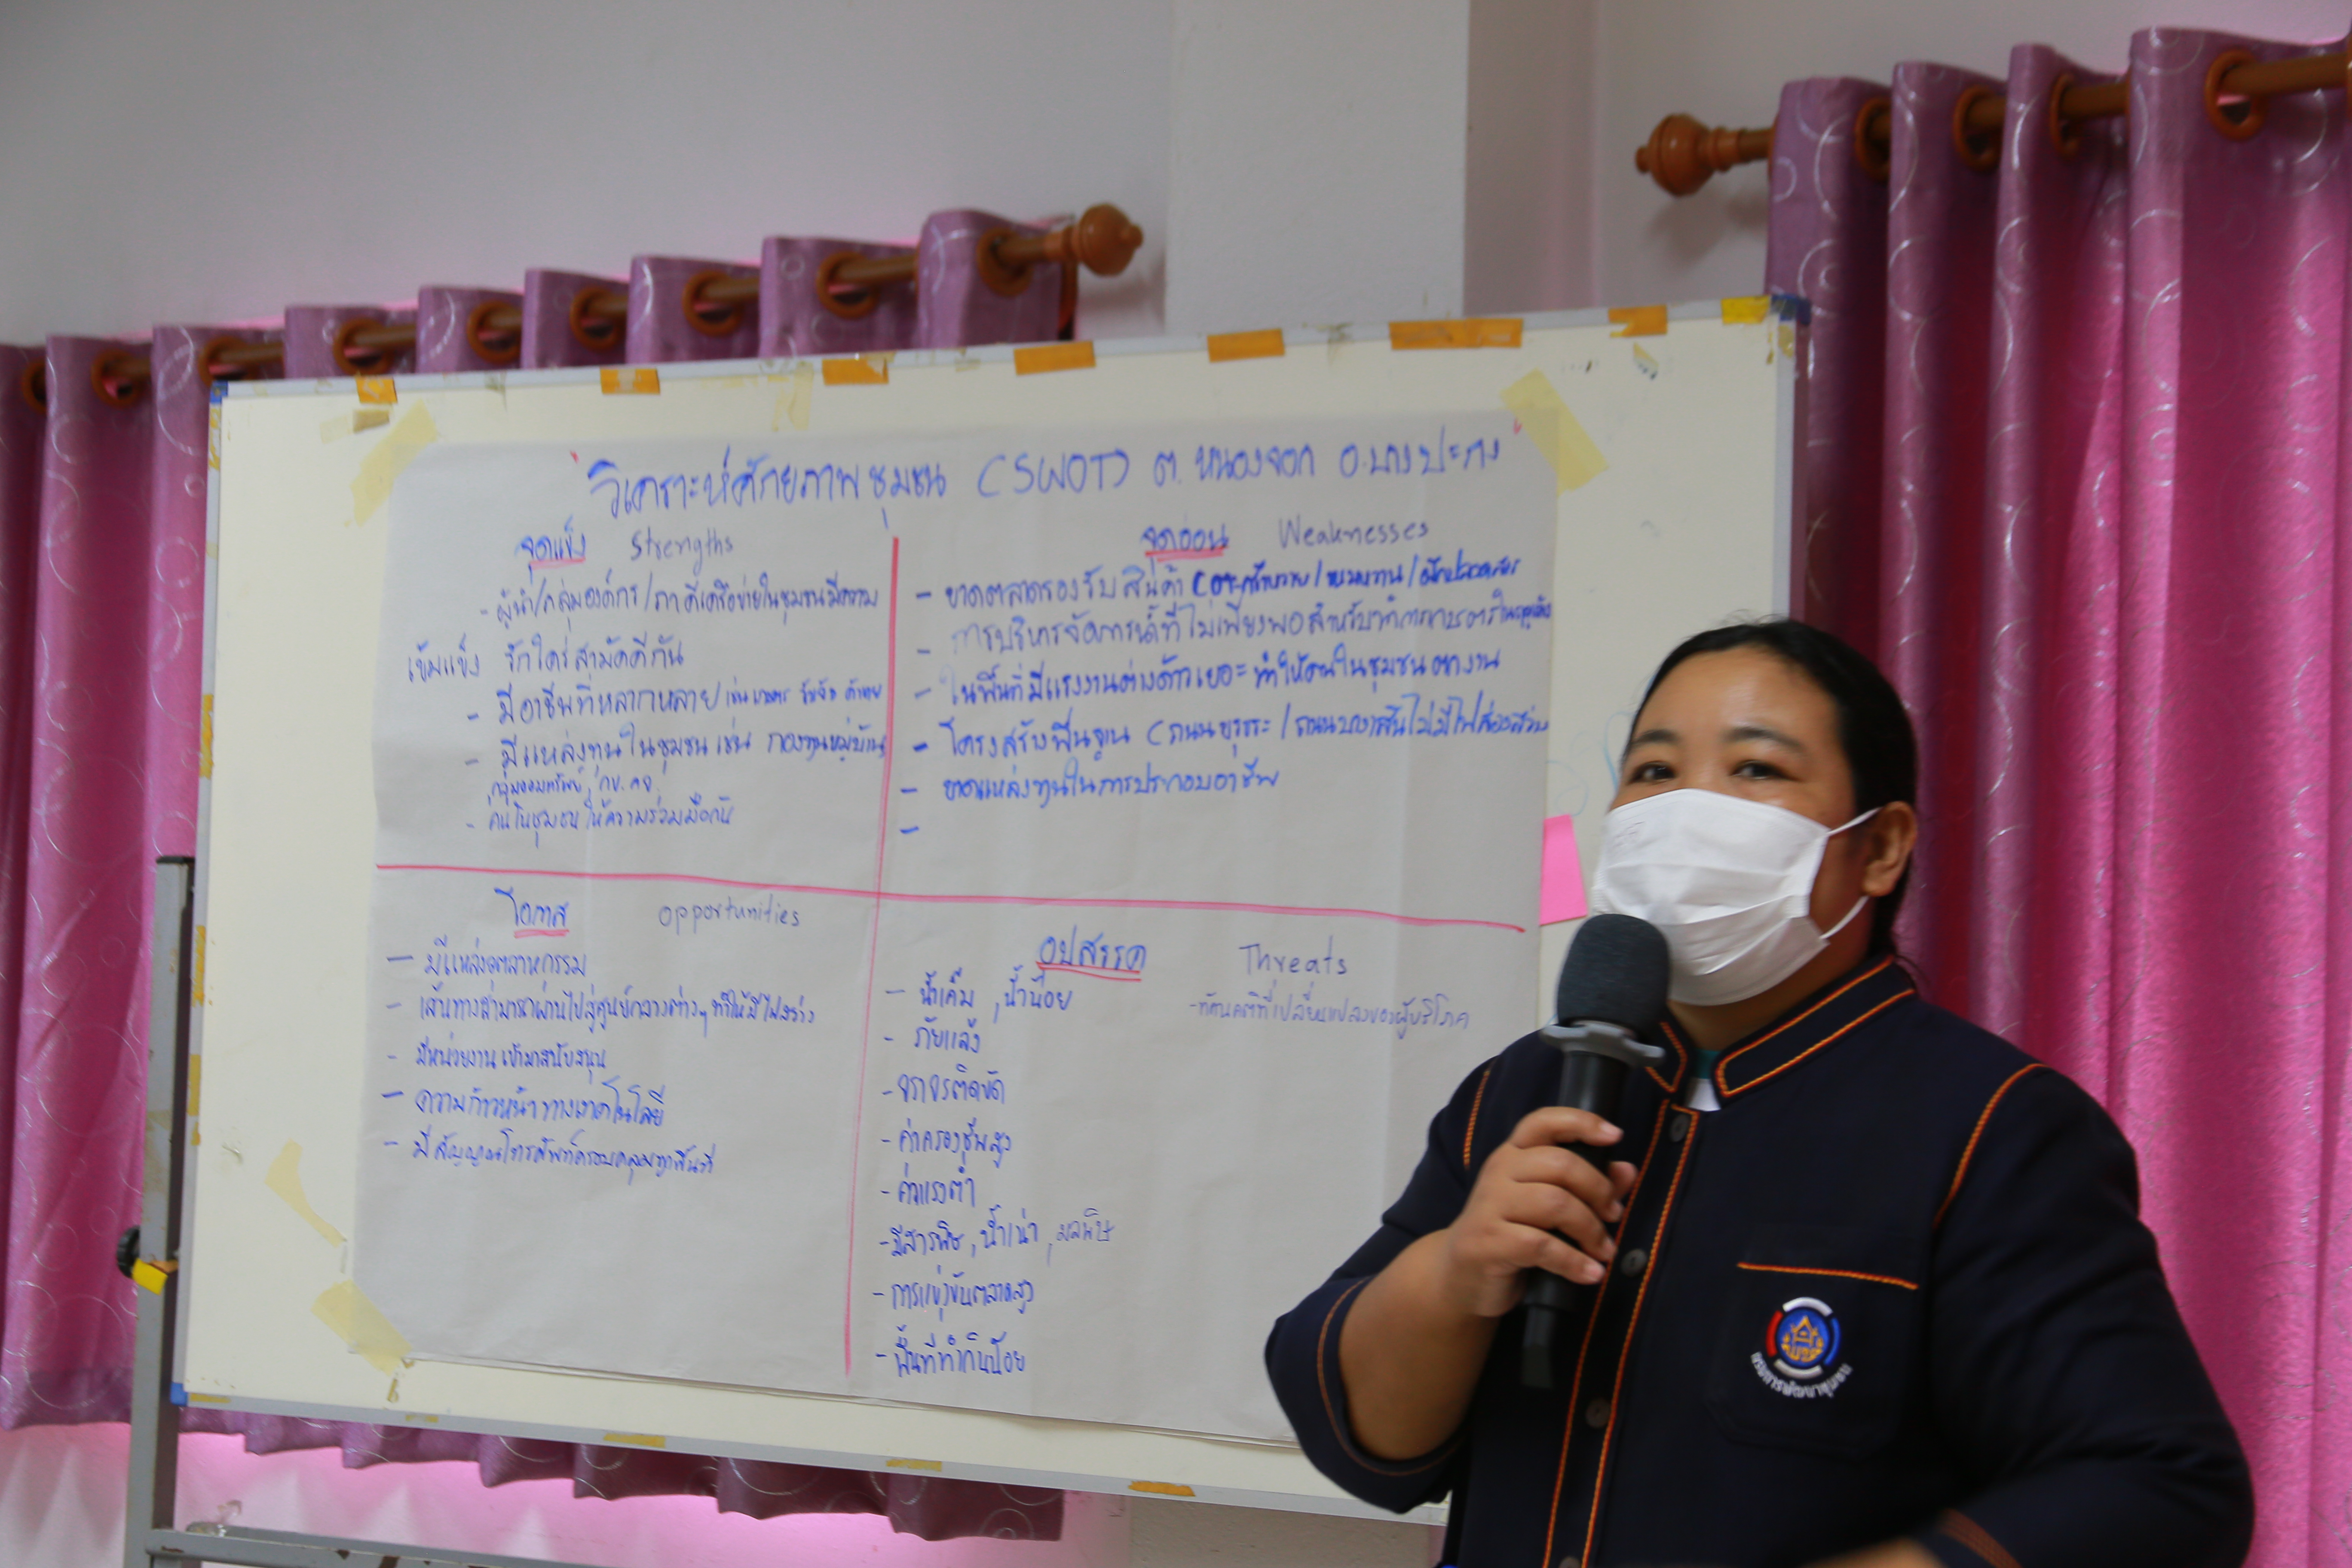 วิเคราะห์ศักยภาพชุมชน (SWOT) ต.หนองจอก อ.บางปะกง
จุดแข็ง Strengths
- ผู้นำ/กลุ่มองค์กร/ภาคีเครือข่ายในชุมชนมีความ
เข้มแข็ง รักใคร่สามัคคีกัน
- มีอาชีพที่หลากหลาย เช่น เกษตร รับจ้าง ค้าขาย
- มีแหล่งทุนในชุมชน เช่น กองทุนหมู่บ้าน
กลุ่มออมทรัพย์, กข.คจ.
- คนในชุมชนให้ความร่วมมือกัน
จุดอ่อน Weaknesses
- ขาดตลาดรองรับสินค้า
- การบริหารจัดการน้ำที่ไม่เพียงพอสำหรับทำการเกษตร
- ในพื้นที่มีแรงงานต่างด้าวเยอะ ทำให้คนในชุมชนตกงาน
- โครงสร้างพื้นฐาน (ถนนขรุขระ/ถนนบางเส้นไม่มีไฟส่องสว่าง
- ขาดแหล่งทุนในการประกอบอาชีพ
-
โอกาส opportunities
- มีแหล่งอุตสาหกรรม
- เส้นทางสามารถผ่านไปสู่ศูนย์กลางต่างๆ ทำให้มีไฟสว่าง
- มีหน่วยงานเข้ามาสนับสนุน
- ความก้าวหน้าทางเทคโนโลยี
- มีสัญญาณโทรศัพท์ครอบคลุมทุกพื้นที่
อุปสรรค Threats
- น้ำเค็ม, น้ำน้อย
- ทัศนคติที่เปลี่ยนแปลงของผู้บริโภค
- ภัยแล้ง
- จราจรติดขัด
- ค่าครองชีพสูง
- ค่าแรงต่ำ
- มีสารพิษ, น้ำเน่า, มลพิษ
- การแข่งขันตลาดสูง
- พื้นที่ทำกินน้อย
กรมการพัฒนาชุมชน